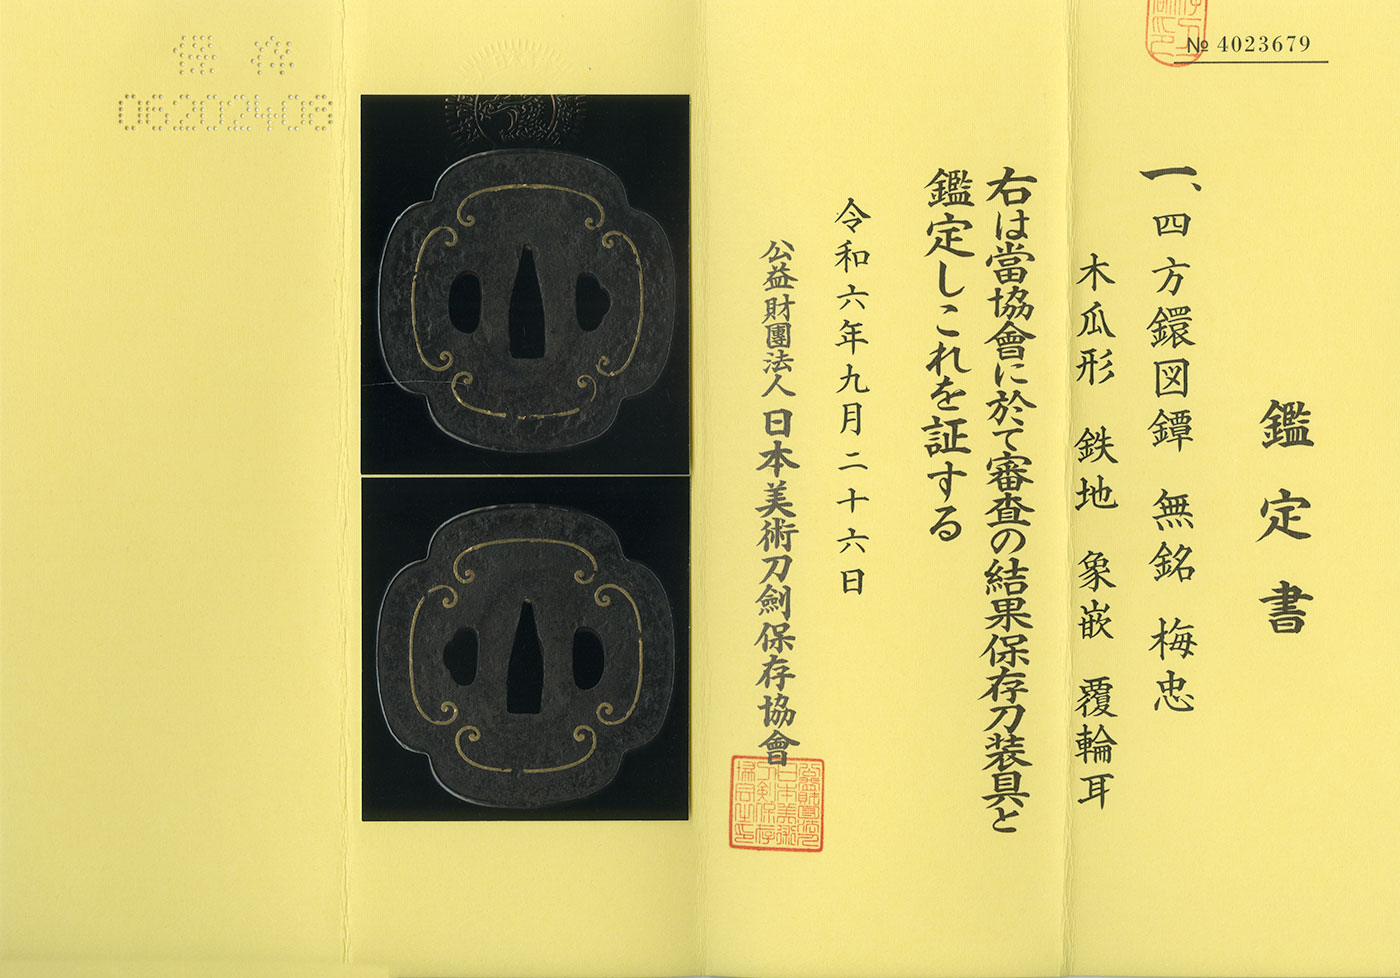 № 4023679
鑑定書
一、四方鐶図鐔 無銘 梅忠
木瓜形 鉄地 象嵌 覆輪耳
右は當協會に於て審査の結果保存刀装具と
鑑定しこれを証する
令和六年九月二十六日
公益財團法人 日本美術刀劍保存協會
保存
06202408